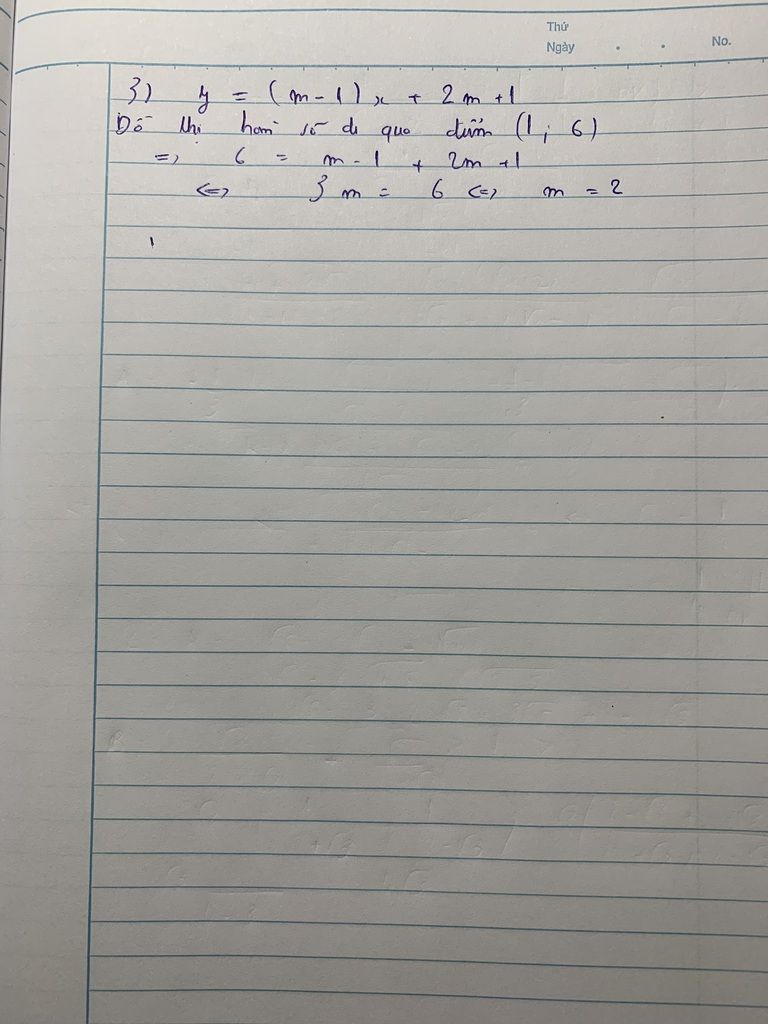 Thứ
Ngày . . No.
3) y = (m - 1)x + 2m + 1
Đồ thị hàm số đi qua điểm (1; 6)
=> 6 = m - 1 + 2m + 1
<=> 3m = 6 <=> m = 2